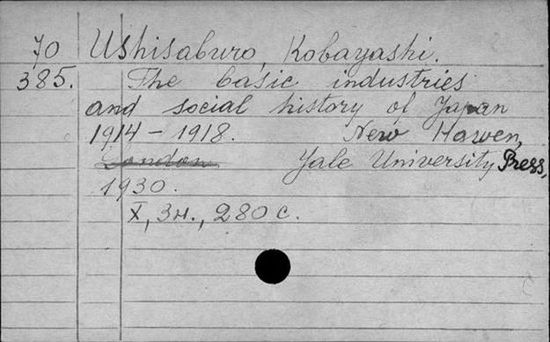 70 Ushisaburo, Kobayashi.
385. The basic industries
and social history of Japan
1914 – 1918. New Hawen,
London Yale University Press,
1930.
X, 3н., 280 с.